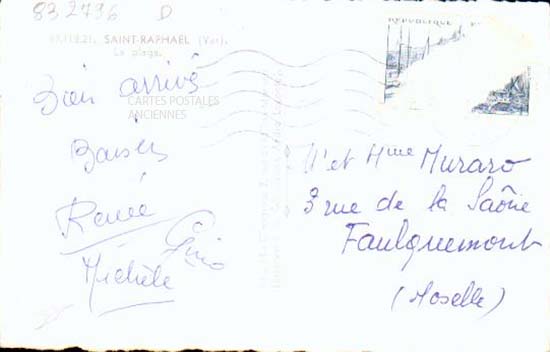 832796 D
SAINT-RAPHAËL (Var).
La plage.
RÉPUBLIQUE
Bien arrivé
CARTES POSTALES
ANCIENNES
Baisers
Renée
Gino
Michèle
Mr et Mme Muraro
3 rue de la Saône
Faulquemont
(Moselle)